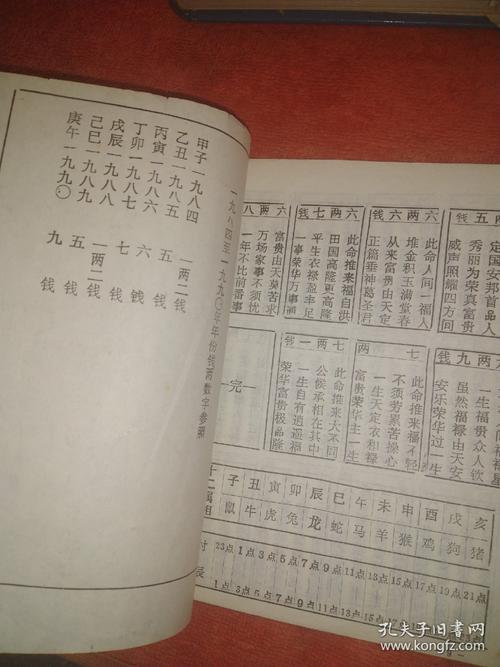 一九八四至一九九〇年年份钱两数字参照
甲子一九八四 一两二钱
乙丑一九八五 五钱
丙寅一九八六 六钱
丁卯一九八七 七钱
戊辰一九八八 一两二钱
己巳一九八九 五钱
庚午一九九〇 九钱
钱五两
定国安邦首品人
秀丽为荣真富贵
威声照耀四方问
钱六两六
此命人间一福人
堆金积玉满堂春
从来富贵由天定
正篇垂神葛圣君
钱七两六
此命推来福自洪
田国高隆更高隆
平生衣禄盈丰足
一事荣华万事浦
两六
富贵由天莫苦求
万场家事不须忧
一年不比前番事
钱九两六
一生福贵众人钦
虽然福禄由天安
安乐荣华过一生
两七
此命推来福不轻
不须劳累苦操心
一生天定衣积禄
富贵荣华主一生
一两七
此命推来大不同
公候承相在其中
一生自有逍遥福
荣华富贵极品隆
—完—
十二属相 子 丑 寅 卯 辰 巳 午 未 申 酉 戌 亥
鼠 牛 虎 兔 龙 蛇 马 羊 猴 鸡 狗 猪
时辰 23点 1点 3点 5点 7点 9点 11点 13点 15点 17点 19点 21点
1点 3点 5点 7点 9点 11点 13点 15点 17点 19点
孔夫子旧书网
www.kongfz.com